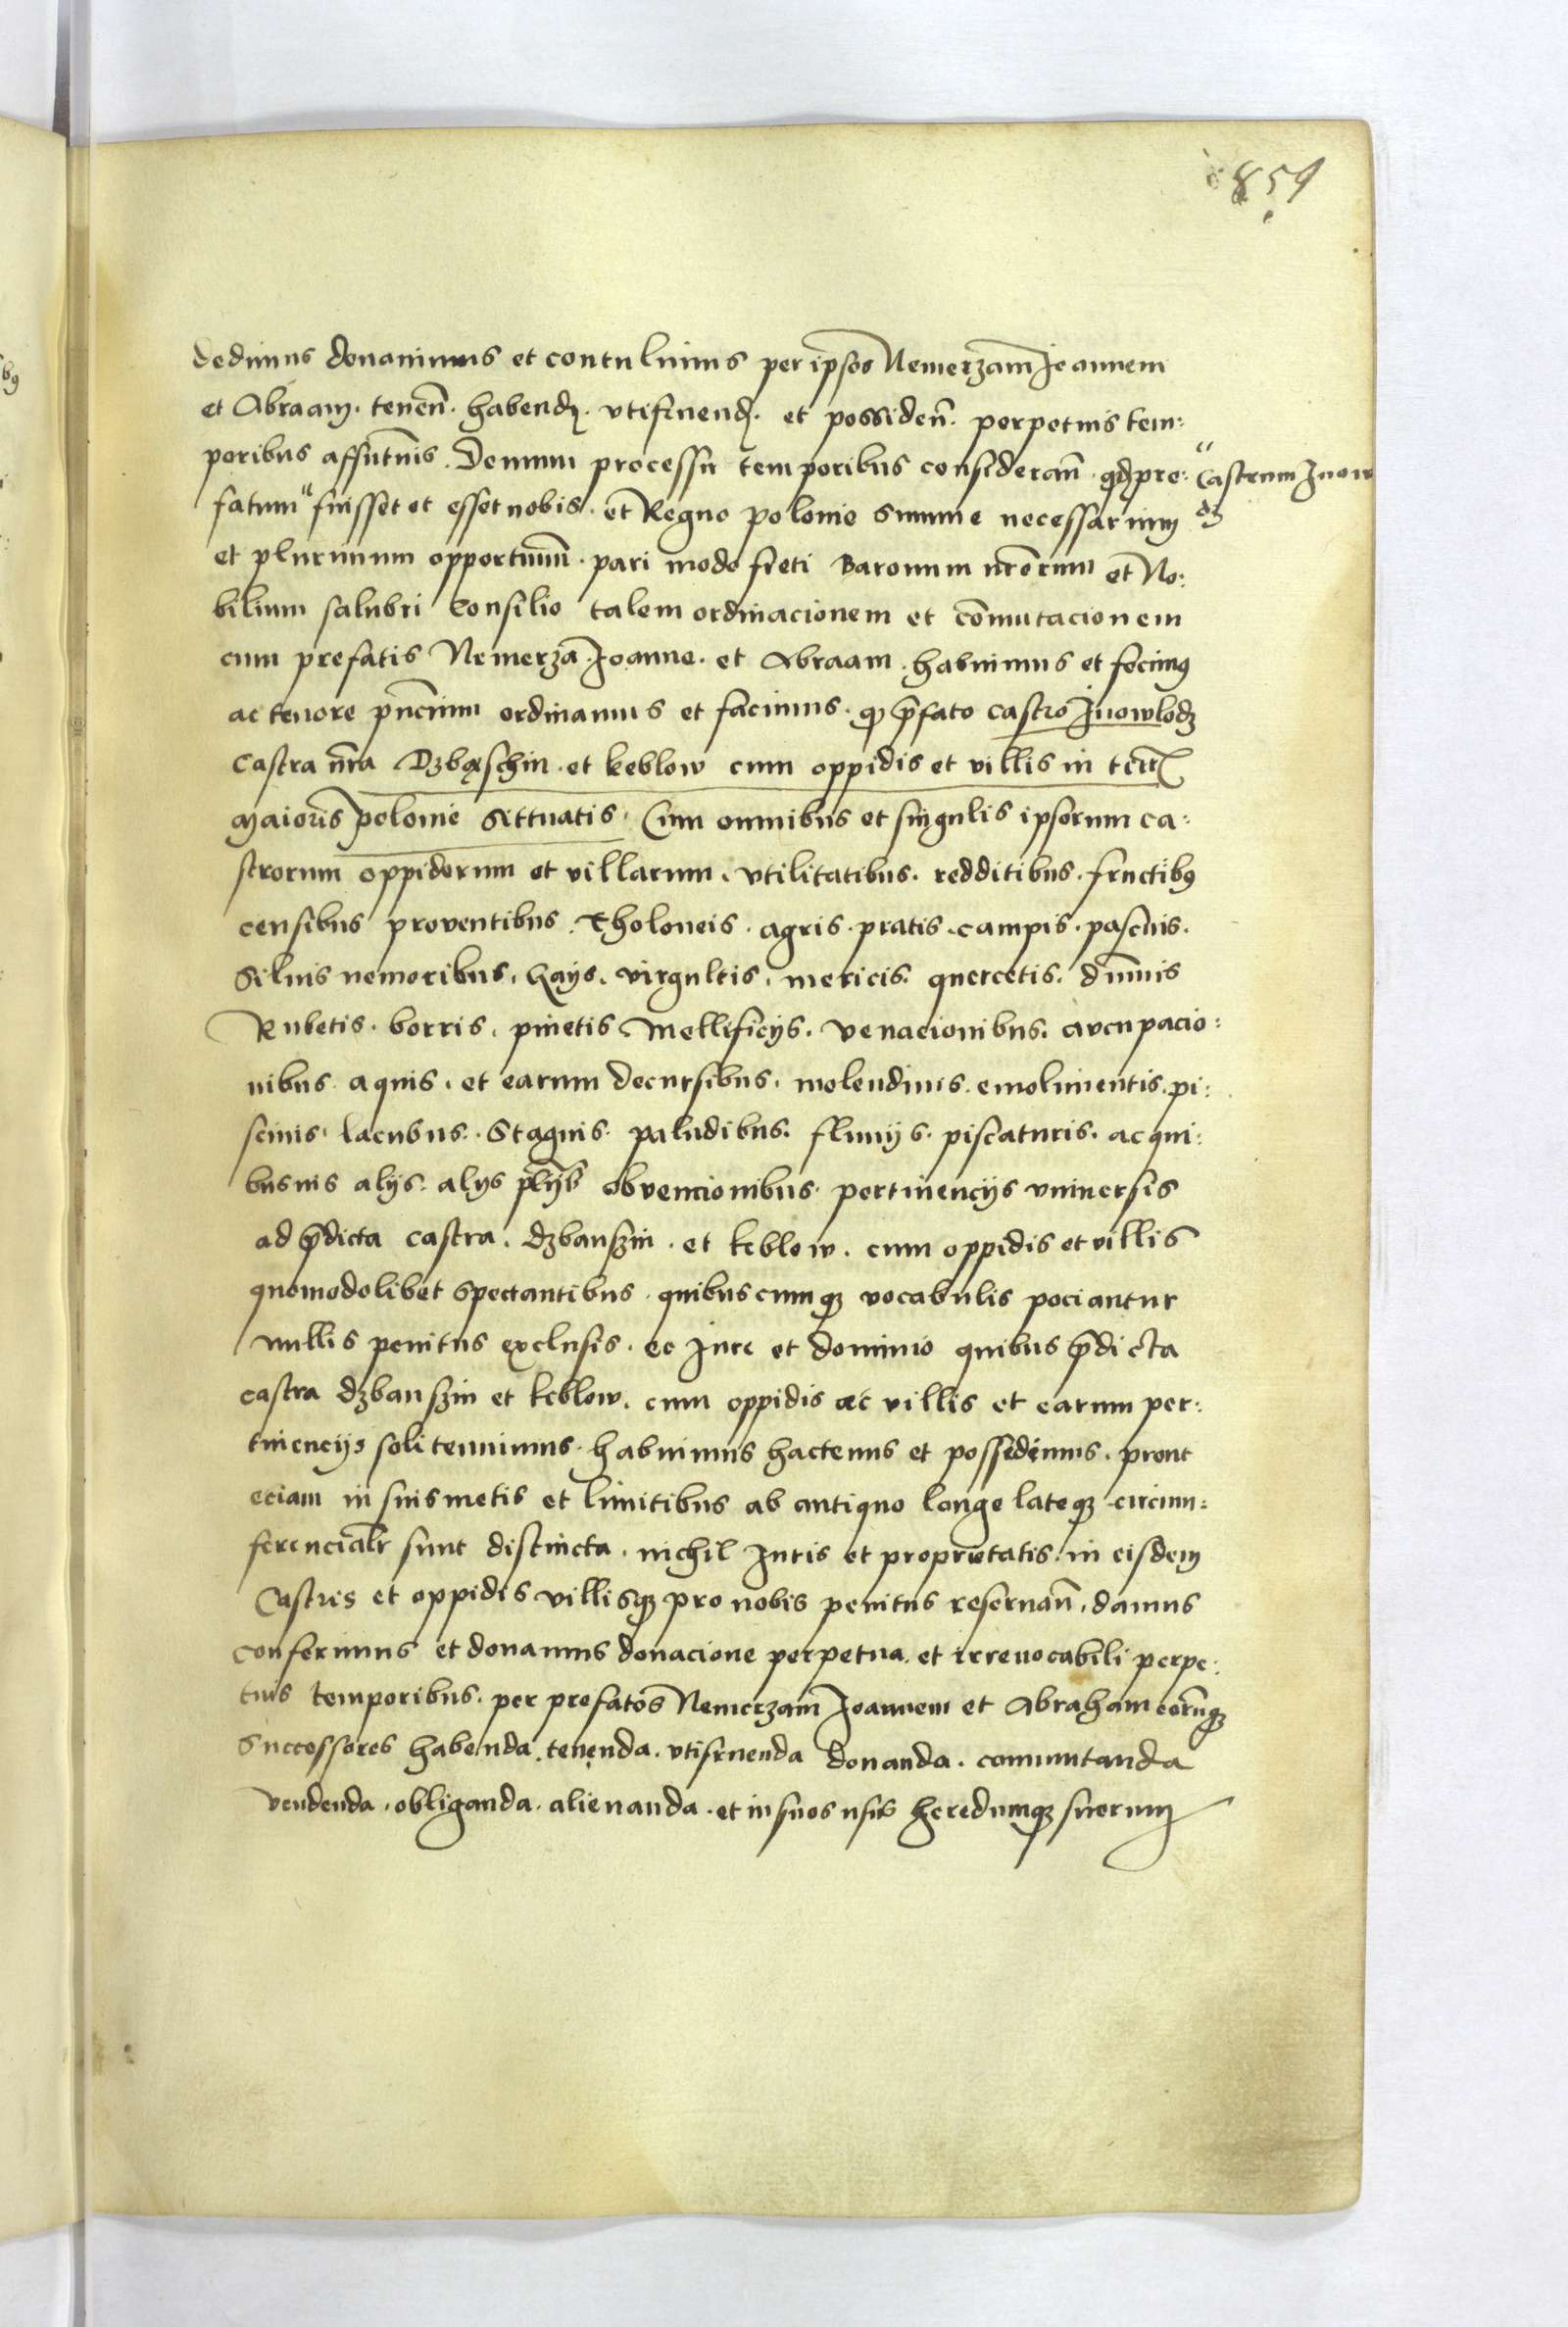 859
dedimus donavimus et contulimus per ip̄sos Nemerzam̄ Joannem
et Abraam. tenen̄. habend̨. vtifruend̨. et possiden̄. perpetuis tem:
poribus affutūris. Demum processu temporibus consideran̄. qd̨ pre: " Castrum Jnow
fatum " fuisset et esset nobis. et Regno polonie Summe necessarium dz
et plurimum opportunū. pari modo freti Baronum nr̄orum et No:
bilium salubri Consilio talem ordinacionem et com̄utacionem
cum prefatis Nemerza. Joanne. et Abraam. habuimus et fecimꝰ
ac tenore pn̄cium ordinamus et facimus. ꝙ p̄fato castro Jnowlodz
Castra nr̄a Dzbąschin. et keblow cum oppidis et villis in terr̄
Maioris polonie Sittuatis. Cum omnibus et singulis ipsorum ca:
strorum oppidorum et villarum. vtilitatibus. redditibus. fructibꝰ
censibus proventibus. Tholoneis. agris. pratis. campis. pascuis.
Siluis nemoribus. hays. virgultis. mericis. quercetis. dumis
Rubetis. borris. pinetis Mellificijs. venacionibus. aucupacio:
nibus. aquis. et earum decursibus. molendinis. emolimentis. pi:
scinis. lacubus. Stagnis. paludibus. fluuijs. piscaturis. ac qui:
busuis alijs. alijs obvencionibus. pertinencijs vniuersis
ad p̄dicta castra. dzbanszin. et keblow. cum oppidis et villis
quomodolibet spectantibus. quibuscumqꝫ vocabulis pociantur
nullis penitus exclusis. eo Jure et dominio quibus p̄dicta
castra dzbanszin et keblow. cum oppidis ac villis et earum per:
tinencijs soli tenuimus. habuimus hactenus et possedimus. prout
eciam in suis metis et limitibus ab antiquo longe lateqꝫ circum:
ferencialr̄ sunt distincta. nichil Juris et proprietatis. in eisdem
Castris et oppidis villisqꝫ pro nobis penitus reseruan̄. damus
conferimus et donamus donacione perpetua. et irreuocabili perpe:
tuis temporibus. per prefatos Nemerzam̄ Joannem et Abraham eorūqꝫ
Successores habenda. tenenda. vtifruenda donanda. comutanda
vendenda. obliganda. alienanda. et in suos usus heredumqꝫ suorum